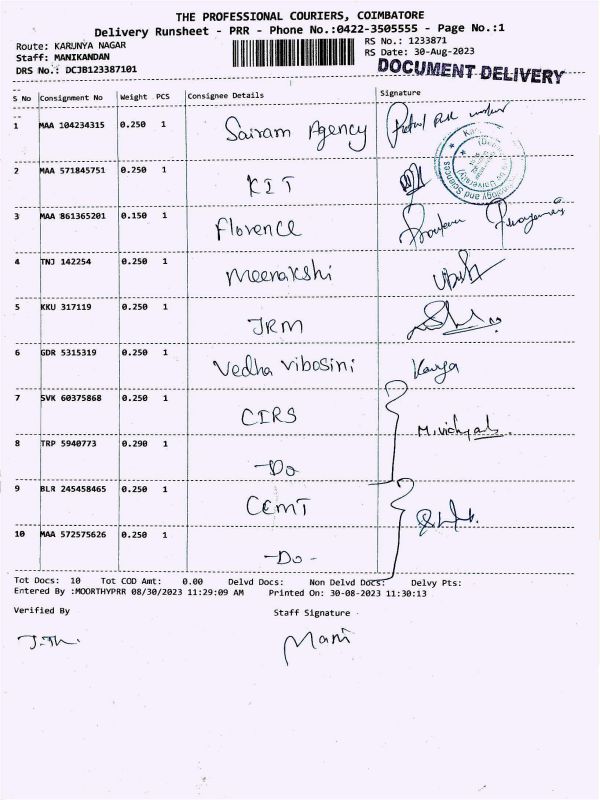 THE PROFESSIONAL COURIERS, COIMBATORE
Delivery Runsheet - PRR - Phone No.:0422-3505555 - Page No.:1
Route: KARUNYA NAGAR
RS No.: 1233871
Staff: MANIKANDAN
RS Date: 30-Aug-2023
DRS No.: DCJB123387101
DOCUMENT DELIVERY
S No Consignment No Weight PCS Consignee Details Signature
1 MAA 104234315 0.250 1 Sairam Agency
2 MAA 571845751 0.250 1 KIT
3 MAA 861365201 0.150 1 Florence
4 TNJ 142254 0.250 1 Meenakshi
5 KKU 317119 0.250 1 JRM
6 GDR 5315319 0.250 1 Vedha Vibosini Kavya
7 SVK 60375868 0.250 1 CIRS
8 TRP 5940773 0.290 1 -Do
9 BLR 245458465 0.250 1 CEMT
10 MAA 572575626 0.250 1 -Do-
Tot Docs: 10 Tot COD Amt: 0.00 Delvd Docs: Non Delvd Docs: Delvy Pts:
Entered By :MOORTHYPRR 08/30/2023 11:29:09 AM Printed On: 30-08-2023 11:30:13
Verified By Staff Signature
Mani